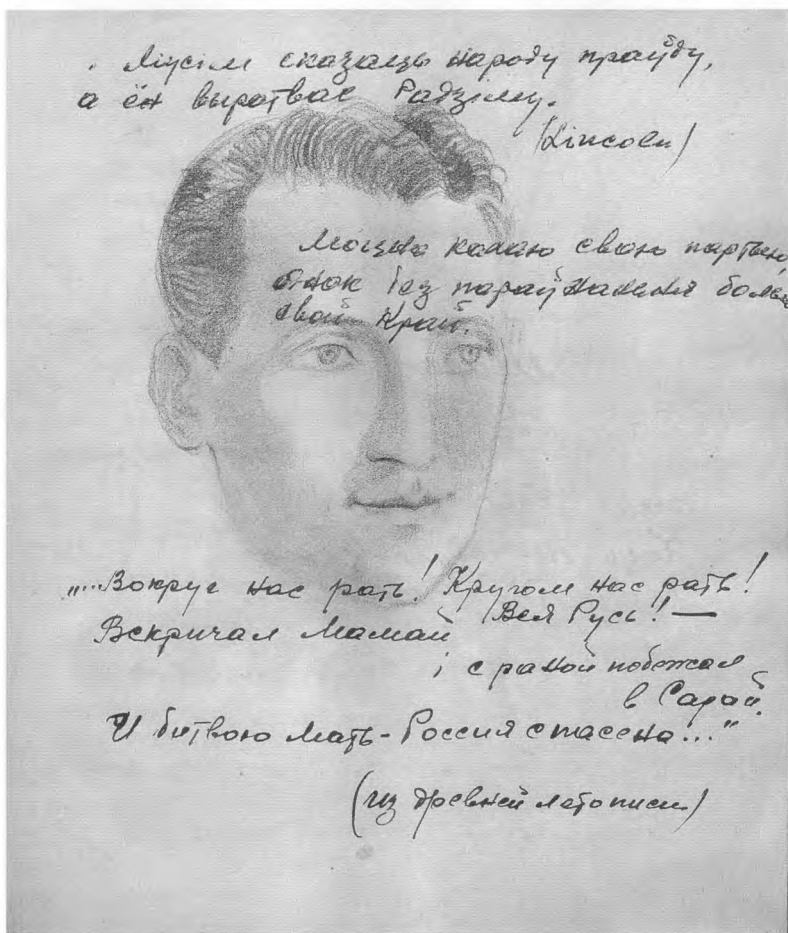 . Мусім сказаць народу праўду,
а ён выратвае Радзіму.
(Lincoln)
Моцна кахаю сваю партыю
але без параўнання больш
свой Край.
"...Вокруг нас рать! Кругом нас рать!
Вскричал Мамай Вся Русь! —
и с раной побежал
в Сарай.
И битвою Мать-Россия спасена..."
(из древней летописи)